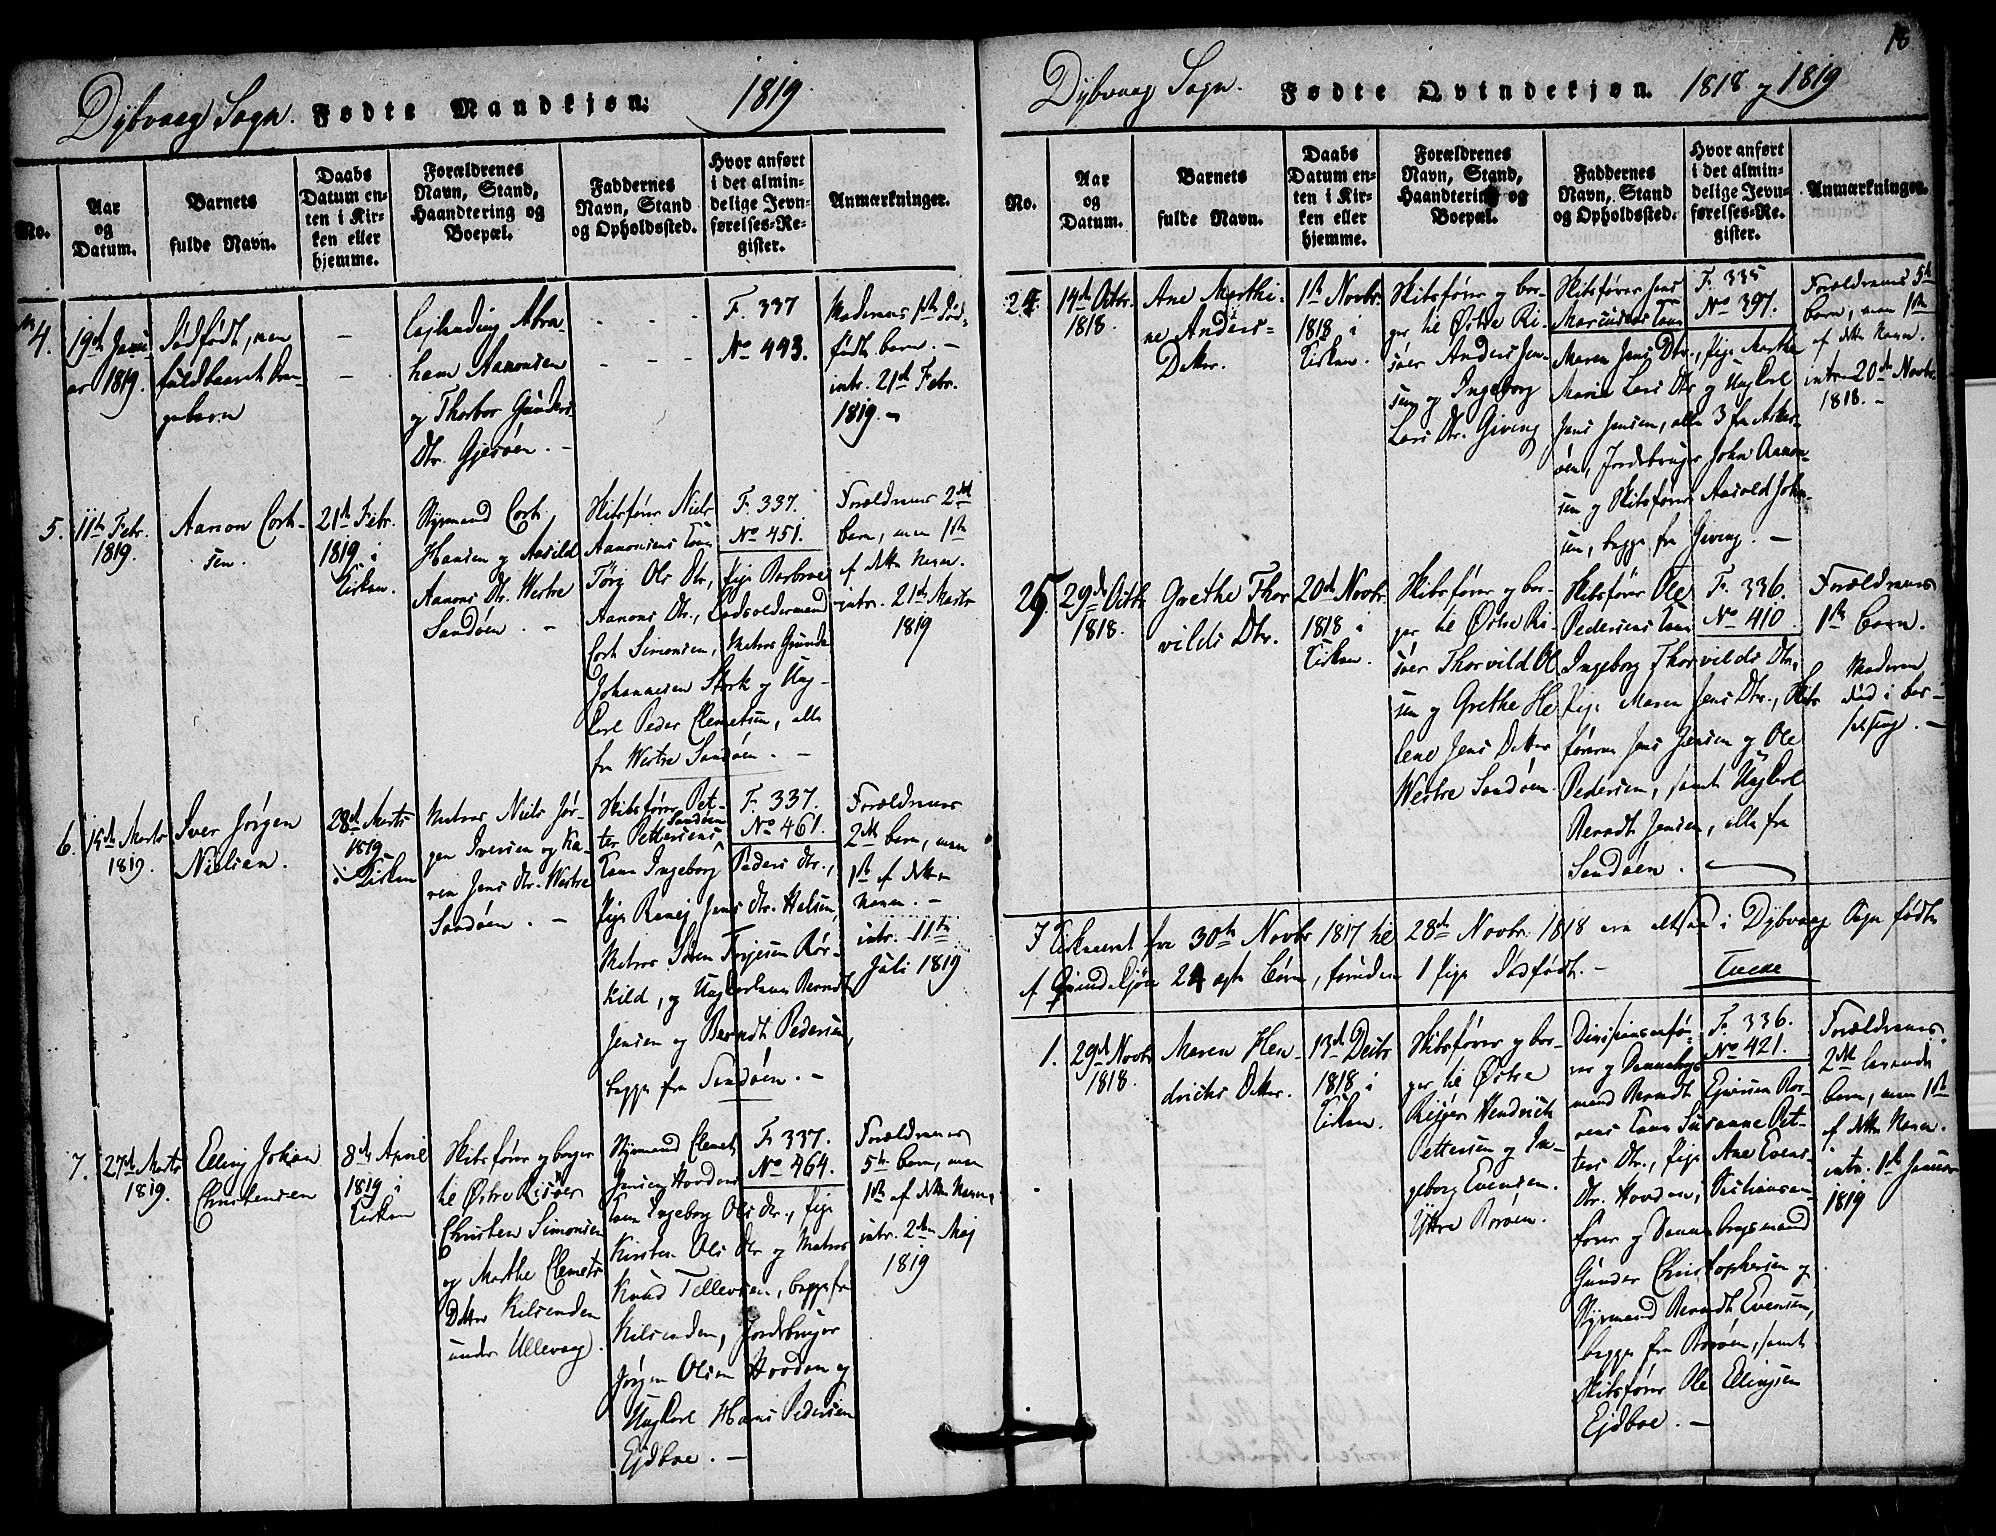 Dybvaag Sogn. Fødte Mandkjøn. 1819
No.
Aar
og
Datum.
Barnets
fulde Navn.
Daabs
Datum en-
ten i Kir-
ken eller
hjemme.
Forældrenes
Navn, Stand,
Haandtering og
Boepæl.
Faddernes
Navn, Stand
og Opholdssted.
Hvor anført
i det almin-
delige Jevn-
førelses-Re-
gister.
Anmærkninger.
4.
19de Janu-
ar 1819.
Dødfødt, men
fuldbaaret Dren-
gebarn
Abra-
ham Aanonsen
og Thorbor Gunders
Dtr. Gjesøen. -
F. 337
No 443.
Moderens 1ste død-
født barn. -
intr. 21de Febr.
1819. -
5.
11te Febr.
1819.
Aanon Cort-
sen.
21de Febr.
1819 i
Kirken.
Styrmand Cort
Hansen og Aasild
Aanons Dtr. Westre
Sandøen. -
Skibsfører Niels
Aanonsens Kone
Tørg Ols Dtr., Pige Barbroe
Aanons Dtr., Lodsoldermand
Cort Simonsen, Matros Gunde
Johannesen Stærk og Ung-
Carl Peder Clemetsen, alle
fra Westre Sandøen. -
F. 337.
No 451.
Forældrenes 2det
barn, men 1ste
af dette Navn.
intr. 21de Marts
1819
6.
15de Marts
1819.
Iver Jørgen
Nielsen.
28de Marts
1819
i Kirken
Matros Niels Jør-
gen Iversen og Ka-
ren Jens Dtr. Westre
Sandøen. -
Skibsfører Pet-
ter Pettersens Sandøen
Kone Ingeborg Peders Dtr.,
Pige Ranej Jens Dtr. Halsen,
Matros Søren Terjesen Rør-
kild, og Ungkarlene Berndt
Jensen og Berndt Pedersen,
begge fra Sandøen. -
F. 337.
No 461.
Forældrenes
2det barn, men
1ste af dette
Navn. -
intr. 11te
Juli 1819
7.
27de Marts
1819.
Elling Johan
Christensen
8de April
1819 i
Kirken
Skibsfører og borger
til Østre Risøer
Christen Simonsen
og Marthe Clemets
Datter Kilsenden
under Ullevaag.
Styrmand Clemet
Jensen Hovdens
Kone Ingeborg Ols Dtr., Pige
Kirsten Ols Dtr og Matros
Knud Tellevsen, begge fra
Kilsenden, Jordbruger
Jørgen Olsen Hovden og
Ungkarl Hans Pedersen
Ejdboe. -
F. 337.
No 464.
Forældrenes
5te barn, men
1ste af dette Navn,
intr. 2den Maj
1819
18
Dybvaag Sogn. Fødte Qvindekjøn. 1818 og 1819
No.
Aar
og
Datum.
Barnets
fulde Navn.
Daabs
Datum en-
ten i Kir-
ken eller
hjemme.
Forældrenes
Navn, Stand,
Haandtering og
Boepæl.
Faddernes
Navn, Stand
og Opholdssted.
Hvor anført
i det almin-
delige Jevn-
førelses-Re-
gister.
Anmærkninger.
24.
14de Octbr.
1818.
Ane Marthi-
ne Anders-
Datter.
1ste Novbr.
1818 i
Kirken.
Skibsfører og bor-
ger til Østre Ri-
søer Anders Jen-
sen og Ingeborg
Lars Dtr. Giving
Skibsfører Jens
Marcussens Kone
Maren Jens Dtr., Pige Marthe
Maria Lars Dtr og Ungkarl
Jens Jensen, alle 3 fra Askers-
øen, Jordbruger John Aanon-
sen og Skibsfører Aasold John-
sen, begge fra Giving. -
F. 335
No 397.
Forældrenes 5te
barn, men 1ste
af dette Navn.
intr. 20de Novbr
1818. -
25.
29de Octbr
1818.
Grethe Thor
vilds Dtr.
20de Novbr.
1818 i
Kirken.
Skibsfører og bor-
ger til Østre Ri-
søer Thorvild Ol
sen og Grethe He
lene Jens Datter
Westre Sandøen.
Skibsfører Ole
Pedersens Kone
Ingeborg Thorvilds Dtr,
Pige Maren Jens Dtr., Skibs
førerne Jens Jensen og Ole
Pedersen, samt Ungkarl
Berndt Jensen, alle fra
Sandøen.
F. 336.
No 410.
Forældrenes
1ste barn.
Moderen
død i bar-
selseng. -
I Kirkeaaret fra 30te Novbr 1817 til 28de Novbr. 1818 ere altsaa i Dybvaag Sogn fødte
af Qvindekjøn 24 ægte Børn, foruden 1 Pige dødfødt. -
1.
29de Novbr
1818.
Maren Hen-
drichs Datter.
13de Decbr
1818 i
Kirken.
Skibsfører og bor-
ger til Østre
Risøer Hendrich
Pettersen og In-
geborg Evensen.
Yttre Borøen.
Divisionsfø-
rer og Dannebrogs
mand Berndt Ejversen Bor-
øens Kone Susanne Pet-
ters Dtr., Pige Ane Evens-
Dtr. Hovden, Divisions-
fører og Dannebrogsmand
Gunder Christophersen og
Styrmand Berndt Evensen,
begge fra Borøen, samt
Skibsfører Ole Ellingsen
Ejdboe. -
F. 336.
No 421.
Forældrenes
2det levende
barn, men 1ste
af dette Navn.
intr. 1ste Januar
1819